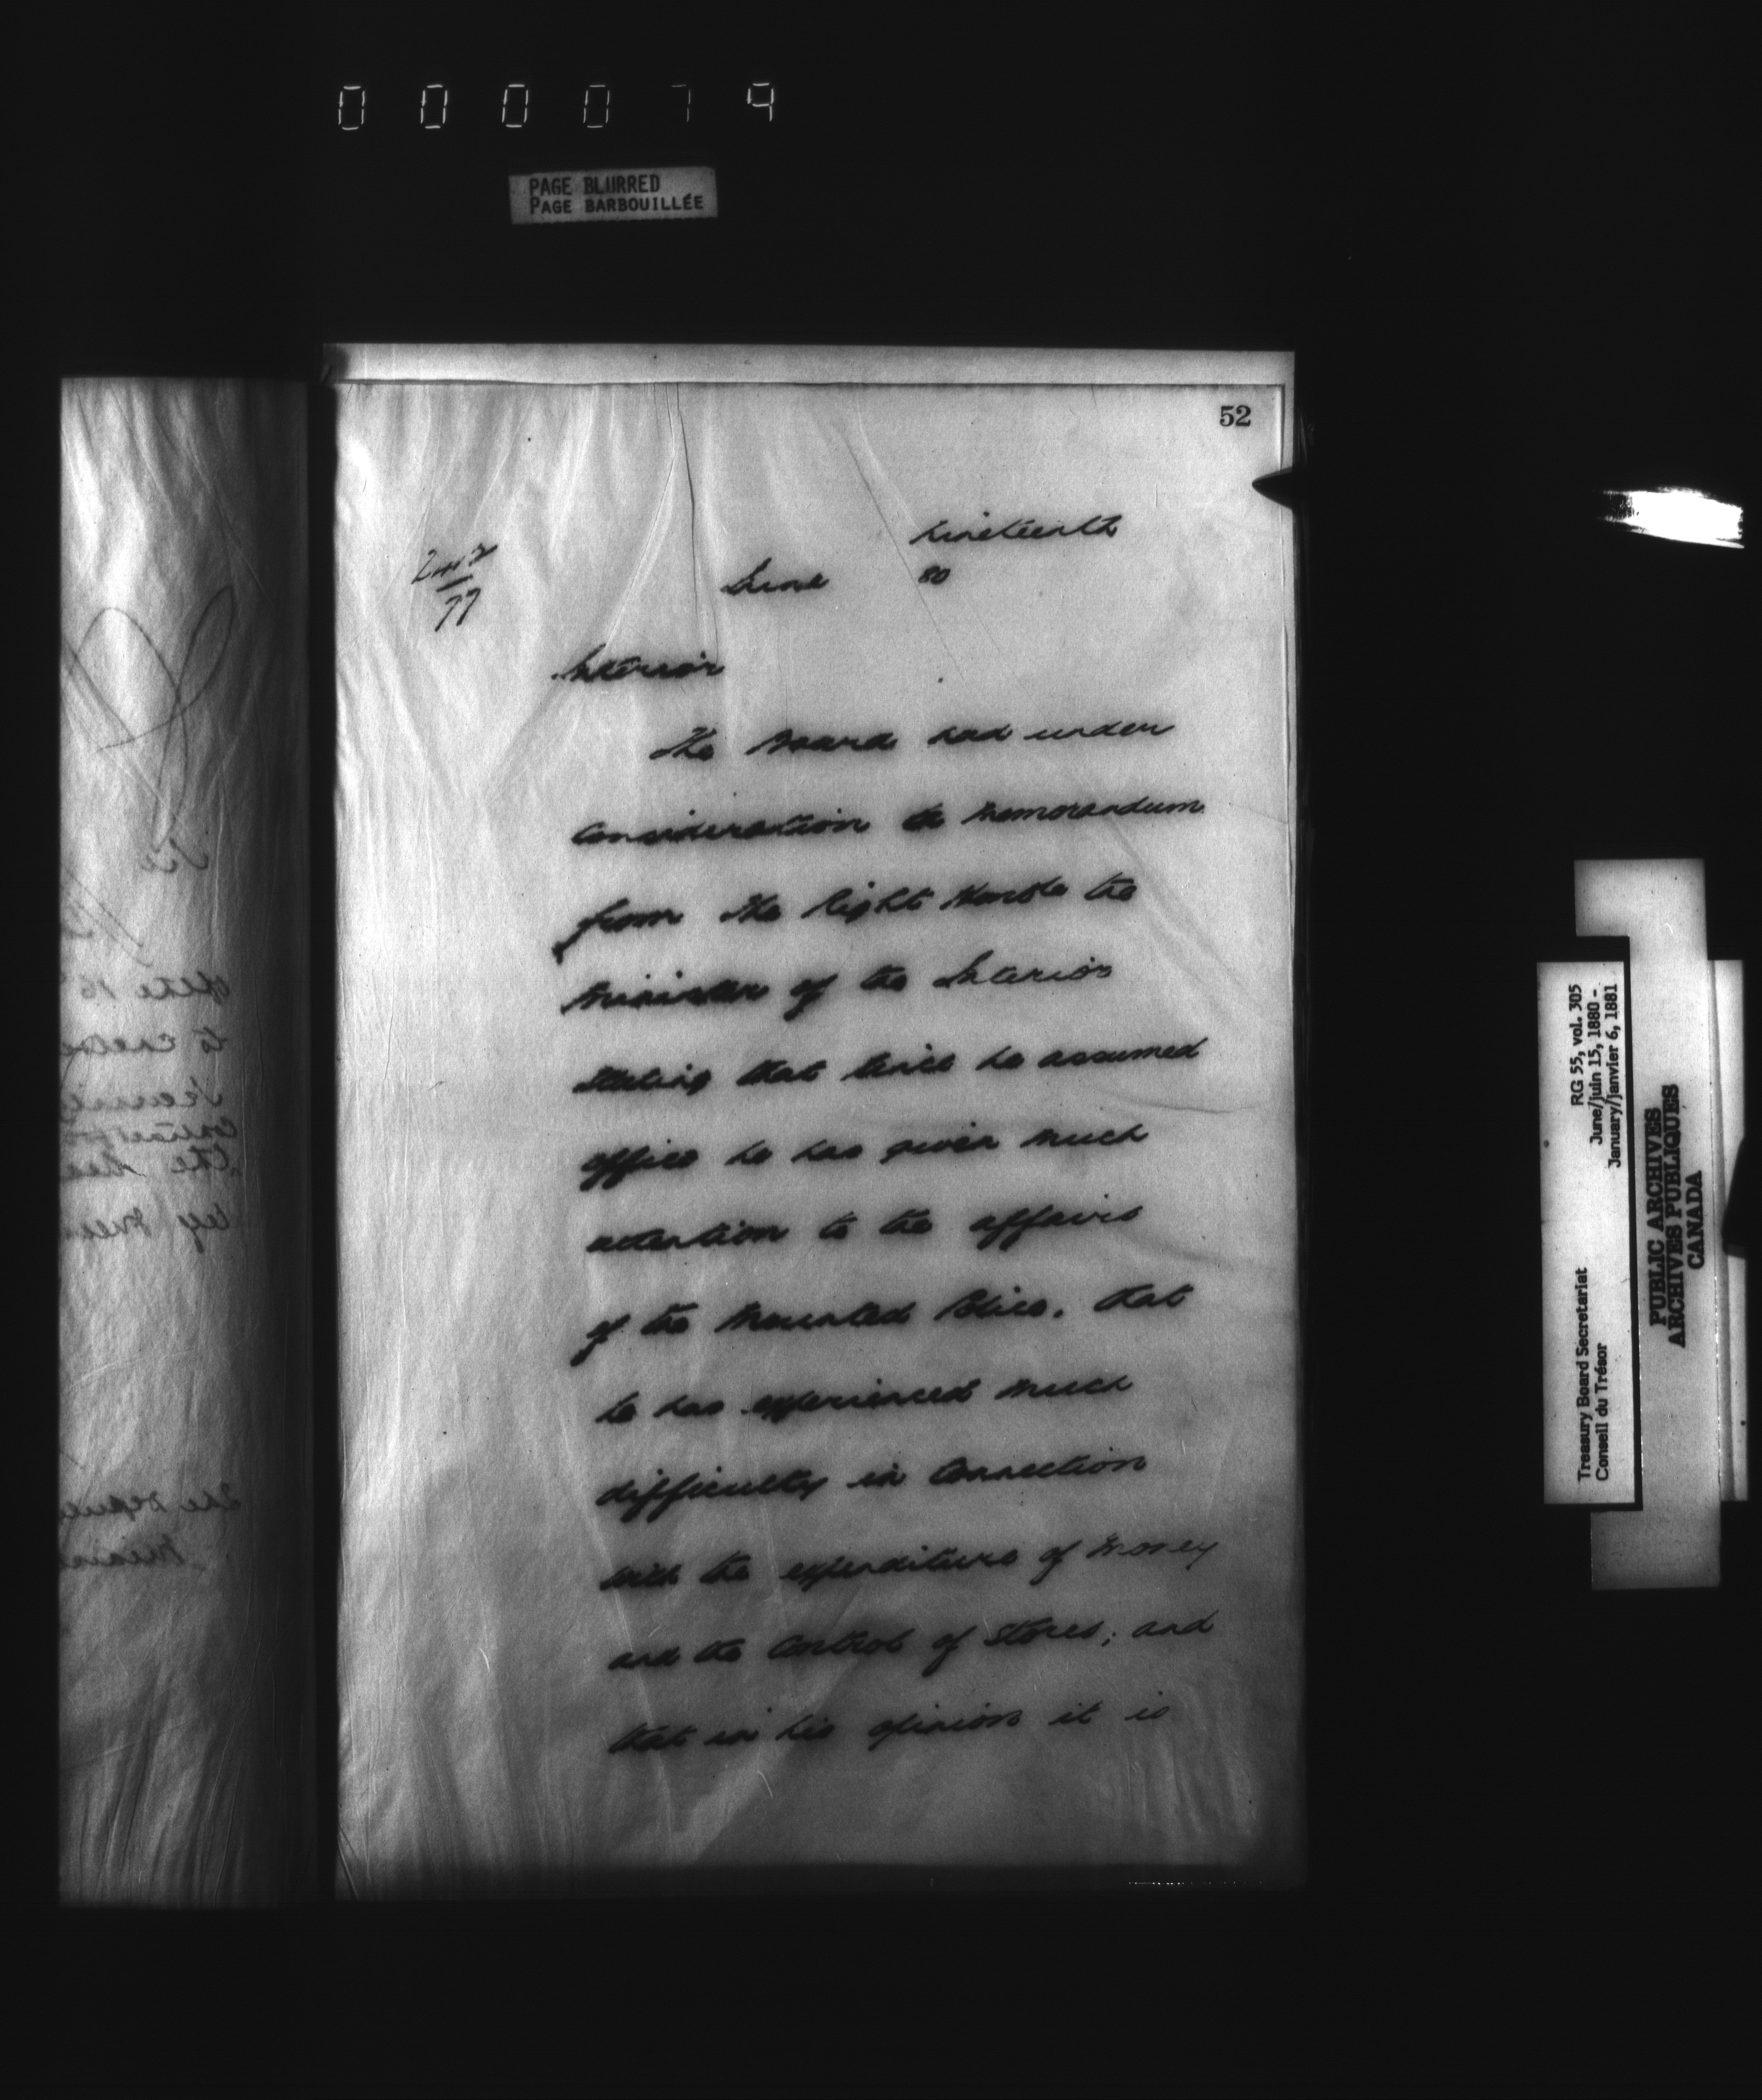 0 0 0 0 7 9
PAGE BLURRED
PAGE BARBOUILLÉE
52
nineteenth
June 80
77
Interior
The Board had under
Consideration a Memorandum
from the Right Honble the
Minister of the Interior
Stating that since he assumed
office he has given much
attention to the affairs
of the Mounted Police. that
he has experienced much
difficulty in Connection
with the expenditure of Money
and the Control of Stores; and
that in his opinion it is
RG 55, vol. 305
June/juin 15, 1880 -
January/janvier 6, 1881
Treasury Board Secretariat
Conseil du Trésor
PUBLIC ARCHIVES
ARCHIVES PUBLIQUES
CANADA